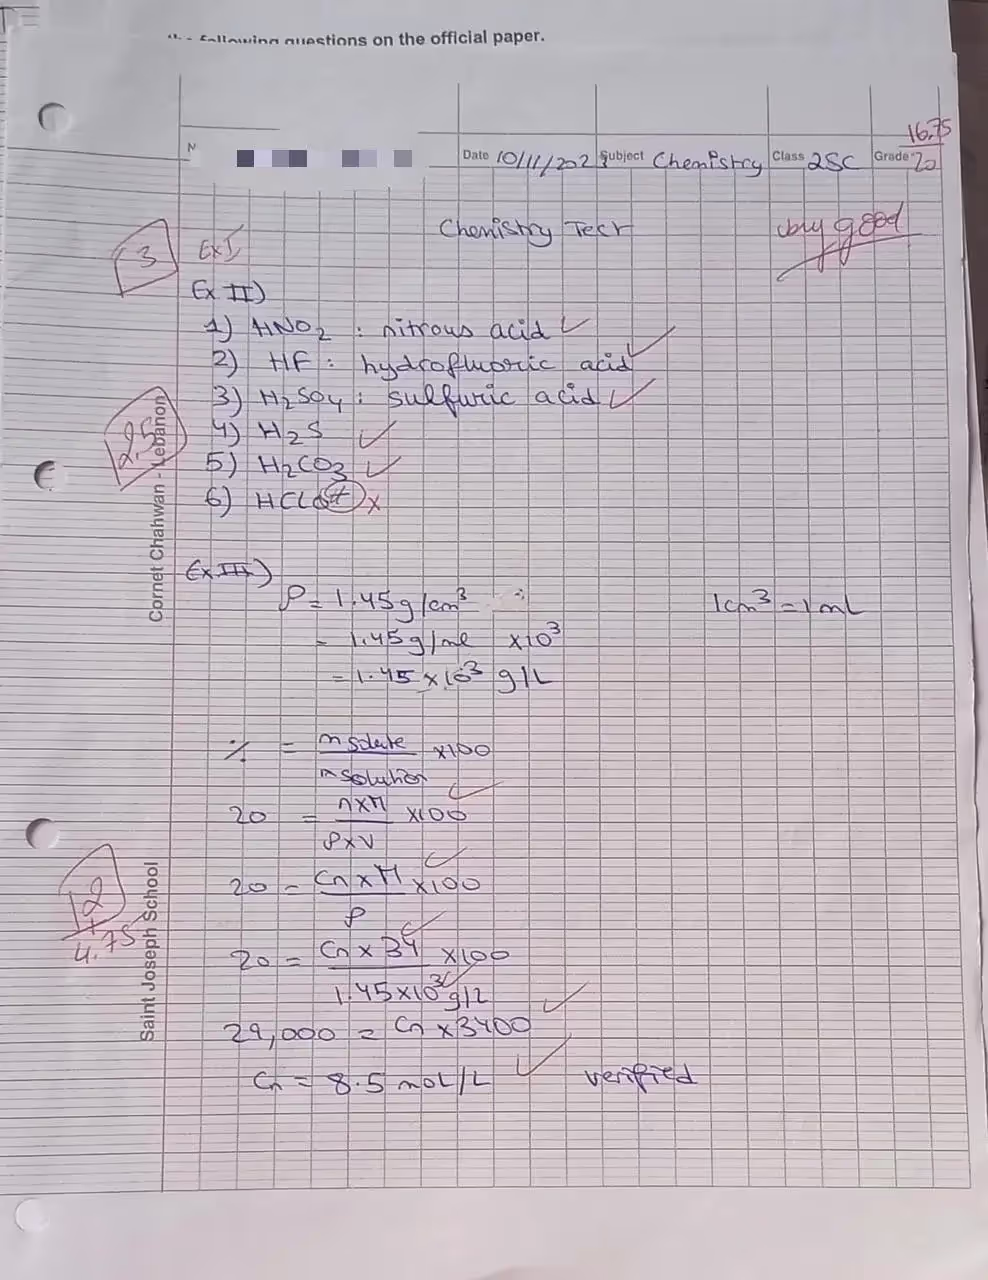 following questions on the official paper.
16.75
N Date 10/11/202 Subject Chemistry Class 2SC Grade 20
Chemistry Test very good
3 Ex I
Ex II)
1) HNO2 : nitrous acid ✓
2) HF : hydrofluoric acid ✓
3) H2SO4 : sulfuric acid ✓
2.5
4) H2S ✓
5) H2CO3 ✓
6) HClO4 x
Cornet Chahwan - Lebanon
Ex III)
ρ = 1.45 g/cm3 1cm3 = 1mL
= 1.45 g/ml x10^3
= 1.45 x 10^3 g/L
% = m solute / m solution x100
20 = n x M / ρ x V x100 ✓
20 = Cn x M / ρ x100 ✓
2
4.75
20 = Cn x 34 / 1.45 x 10^3 g/L x100 ✓
29,000 = Cn x 3400 ✓
Cn = 8.5 mol/L ✓ verified
Saint Joseph School